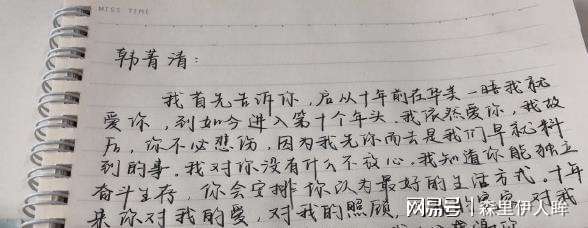 MISS TIME
韩菁清：
我首先告诉你，后从十年前在华美一晤我就
爱你，到如今进入第十个年头，我依然爱你，我故
后，你不必悲伤，因为我先你而去是我们早就料
到的事。我对你没有什么不放心，我知道你能独立
奋斗生存，你会安排你认为最好的生活方式。十年
来你对我的爱，对我的照顾，对我
网易号 | 森里伊人眸